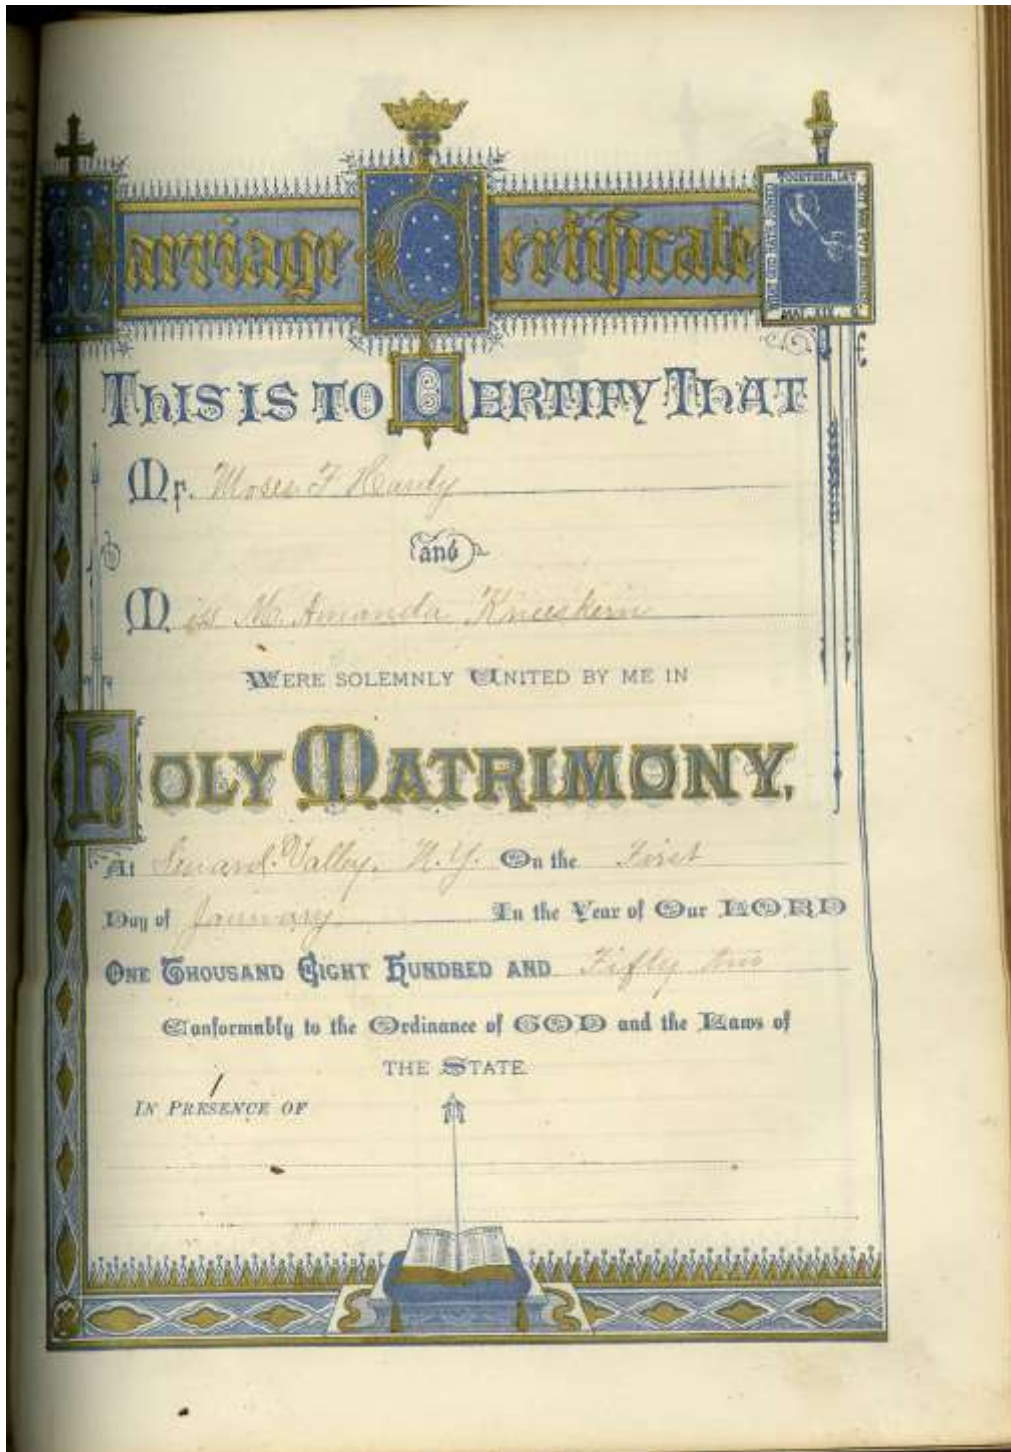 Marriage Certificate
THIS IS TO CERTIFY THAT
Mr. Moses F Hardy
and
Miss M. Amanda Knieskern
WERE SOLEMNLY UNITED BY ME IN
HOLY MATRIMONY,
At Seward Valley, N.Y. On the First
Day of January In the Year of Our LORD
ONE THOUSAND EIGHT HUNDRED AND Fifty two
Conformably to the Ordinance of GOD and the Laws of
THE STATE
IN PRESENCE OF